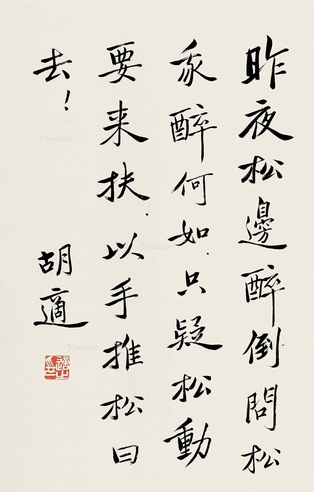 昨夜松邊醉倒問松
我醉何如.只疑松動
要来扶.以手推松曰
去！
胡適